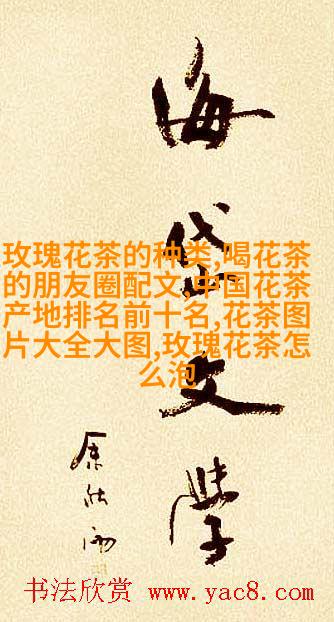 海岱文學
玫瑰花茶的种类,喝花茶
的朋友圈配文,中国花茶
产地排名前十名,花茶图
片大全大图,玫瑰花茶怎
么泡
书法欣赏 www.yac8.com